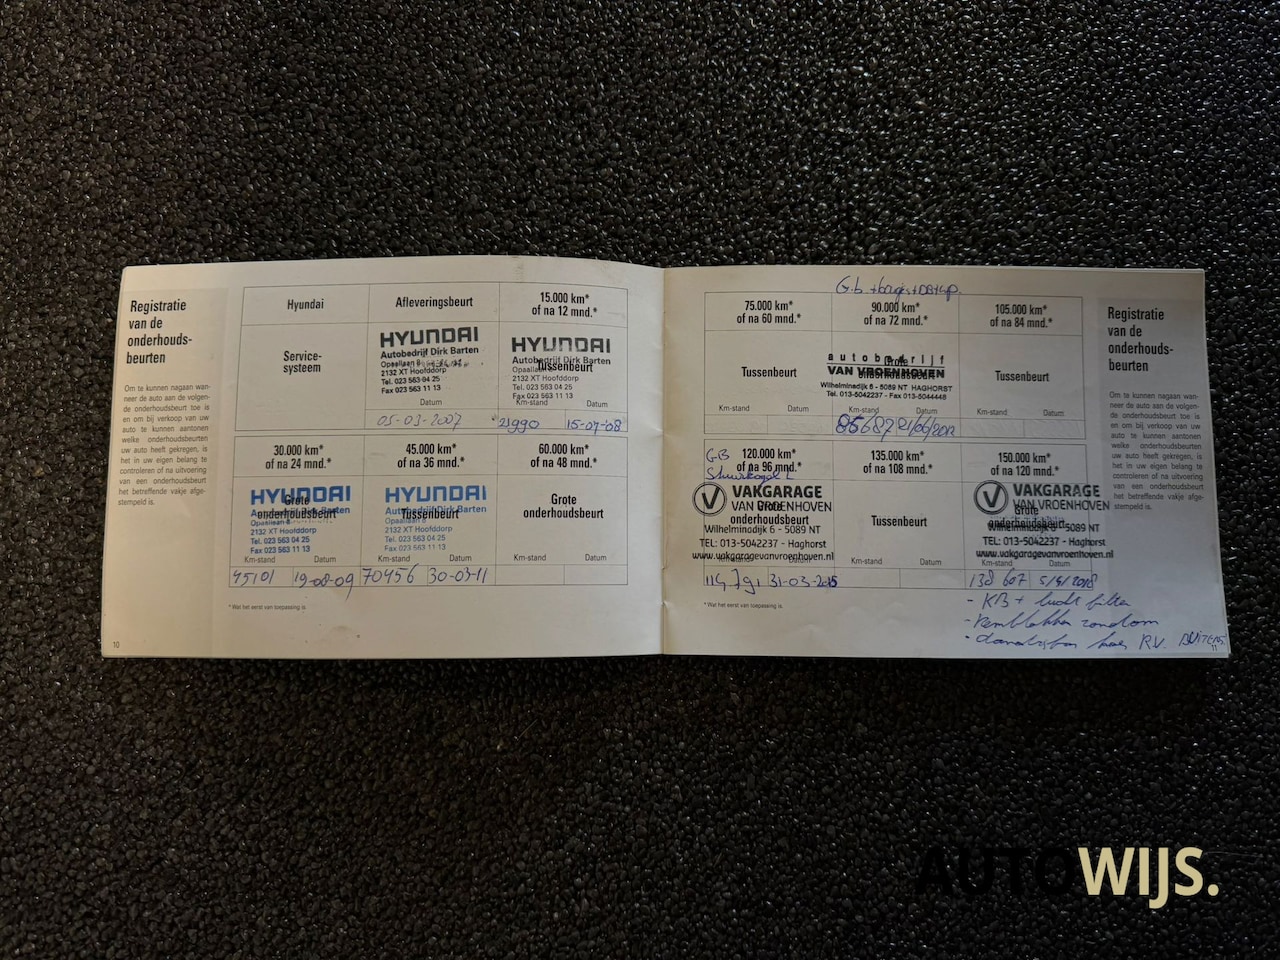 Registratie
van de
onderhouds-
beurten
Om te kunnen nagaan wan-
neer de auto aan de volgen-
de onderhoudsbeurt toe is
en om bij verkoop van uw
auto te kunnen aantonen
welke onderhoudsbeurten
uw auto heeft gekregen, is
het in uw eigen belang te
controleren of na uitvoering
het betreffende vakje afge-
stempeld is.
Hyundai
Afleveringsbeurt
15.000 km*
of na 12 mnd.*
Service-
systeem
HYUNDAI
Autobedrijf Dirk Barten
Opaallaan 8
2132 XT Hoofddorp
Tel. 023 563 04 25
Fax 023 563 11 13
Datum
05-03-2007
HYUNDAI
Autobedrijf Dirk Barten
Tussenbeurt
Opaallaan 8
2132 XT Hoofddorp
Tel. 023 563 04 25
Fax 023 563 11 13
Km-stand Datum
21990 15-07-08
30.000 km*
of na 24 mnd.*
45.000 km*
of na 36 mnd.*
60.000 km*
of na 48 mnd.*
HYUNDAI
Grote
onderhoudsbeurt
Opaallaan 8
2132 XT Hoofddorp
Tel. 023 563 04 25
Fax 023 563 11 13
Km-stand Datum
45101 19-08-09
HYUNDAI
Autobedrijf Dirk Barten
Tussenbeurt
Opaallaan 8
2132 XT Hoofddorp
Tel. 023 563 04 25
Fax 023 563 11 13
Km-stand Datum
70456 30-03-11
Grote
onderhoudsbeurt
Km-stand Datum
* Wat het eerst van toepassing is.
10
75.000 km*
of na 60 mnd.*
90.000 km*
of na 72 mnd.*
105.000 km*
of na 84 mnd.*
Tussenbeurt
Km-stand Datum
autobedrijf
VAN VROENHOVEN
Grote
Wilhelminadijk 6 - 5089 NT HAGHORST
Tel. 013-5042237 - Fax 013-5044448
Km-stand Datum
85687
Tussenbeurt
Km-stand Datum
GB
120.000 km*
of na 96 mnd.*
135.000 km*
of na 108 mnd.*
150.000 km*
of na 120 mnd.*
VAKGARAGE
VAN VROENHOVEN
Grote
onderhoudsbeurt
Wilhelminadijk 6 - 5089 NT
TEL: 013-5042237 - Haghorst
www.vakgaragevanvroenhoven.nl
Km-stand Datum
31-03-2015
Tussenbeurt
Km-stand Datum
VAKGARAGE
VAN VROENHOVEN
Grote
onderhoudsbeurt
Wilhelminadijk 6 - 5089 NT
TEL: 013-5042237 - Haghorst
www.vakgaragevanvroenhoven.nl
138 607 5/4/2018
- KB + lucht filter
- Remblokken rondom
RV. BUITEN
* Wat het eerst van toepassing is.
11
Registratie
van de
onderhouds-
beurten
Om te kunnen nagaan wan-
neer de auto aan de volgen-
de onderhoudsbeurt toe is
en om bij verkoop van uw
auto te kunnen aantonen
welke onderhoudsbeurten
uw auto heeft gekregen, is
het in uw eigen belang te
controleren of na uitvoering
het betreffende vakje afge-
stempeld is.
AUTOWIJS.